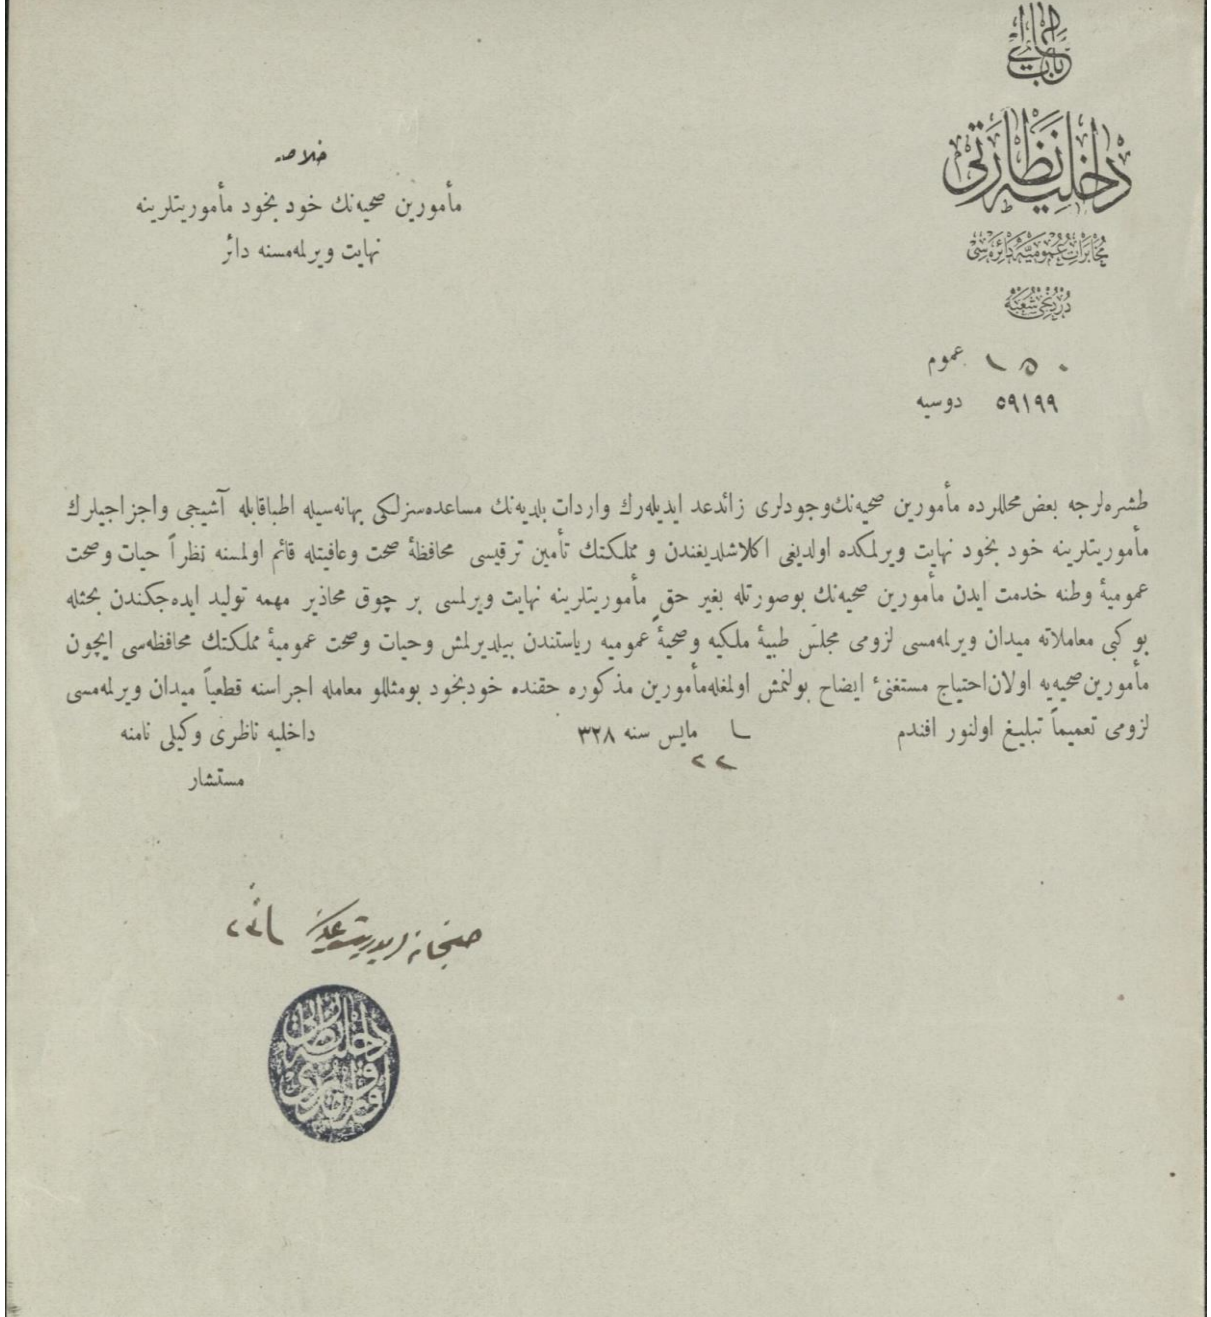 باب عالی
داخلیه نظارتی
مخابرات عمومیه دائره‌سی
دردنجی شعبه
عموم ١٥٠
دوسیه ٥٩١٩٩
خلاصه
مأمورین صحیه‌نك خود بخود مأموریتلرینه
نهایت ویرلمه‌مسنه دائر
طشره‌لرجه بعض محللرده مأمورین صحیه‌نك وجودلری زائد عد ایدیله‌رك واردات بلدیه‌نك مساعده‌سزلكی بهانه‌سیله اطباقابله آشیجی واجزاجیلرك
مأموریتلرینه خود بخود نهایت ویرلمكده اولدیغی اكلاشلدیغندن و مملكتك تأمین ترقیسی محافظهٔ صحت وعافیتله قائم اولمسنه نظراً حیات وصحت
عمومیهٔ وطنه خدمت ایدن مأمورین صحیه‌نك بوصورتله بغیر حق مأموریتلرینه نهایت ویرلمسی بر چوق محاذیر مهمه تولید ایده‌جكندن بحثله
بو كبی معاملاته میدان ویرلمه‌مسی لزومی مجلس طبیهٔ ملكیه وصحیهٔ عمومیه ریاستندن بیلدیرلمش وحیات وصحت عمومیهٔ مملكتك محافظه‌سی ایچون
مأمورین صحیه‌یه اولان احتیاج مستغنیٔ ایضاح بولنمش اولمغله مأمورین مذكوره حقنده خودبخود بومثللو معامله اجراسنه قطعیاً میدان ویرلمه‌مسی
لزومی تعمیماً تبلیغ اولنور افندم مایس سنه ٣٢٨ داخلیه ناظری وكیلی نامنه
٢٢
مستشار
داخلیه نظارتی